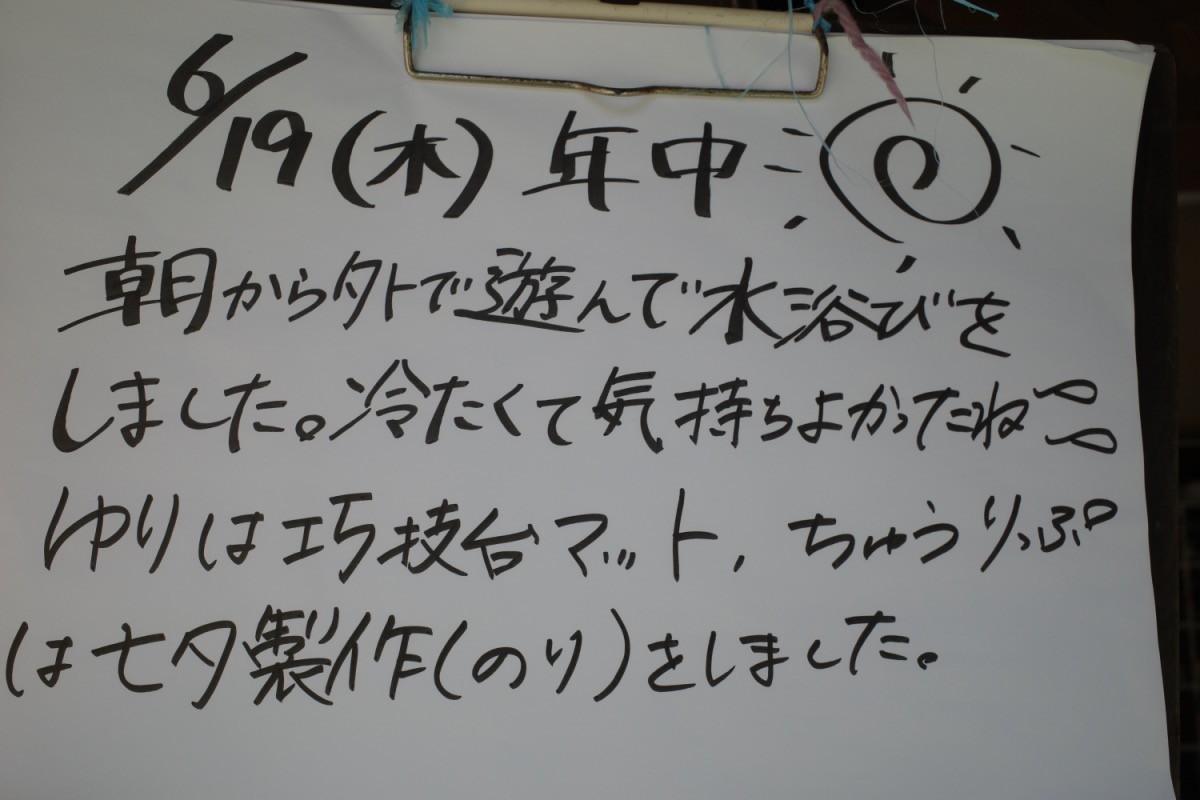 6/19(木) 年中
朝から外で遊んで水浴びを
しました。冷たくて気持ちよかったね
ゆりは巧技台マット、ちゅうりっぷ
は七夕製作(のり)をしました。